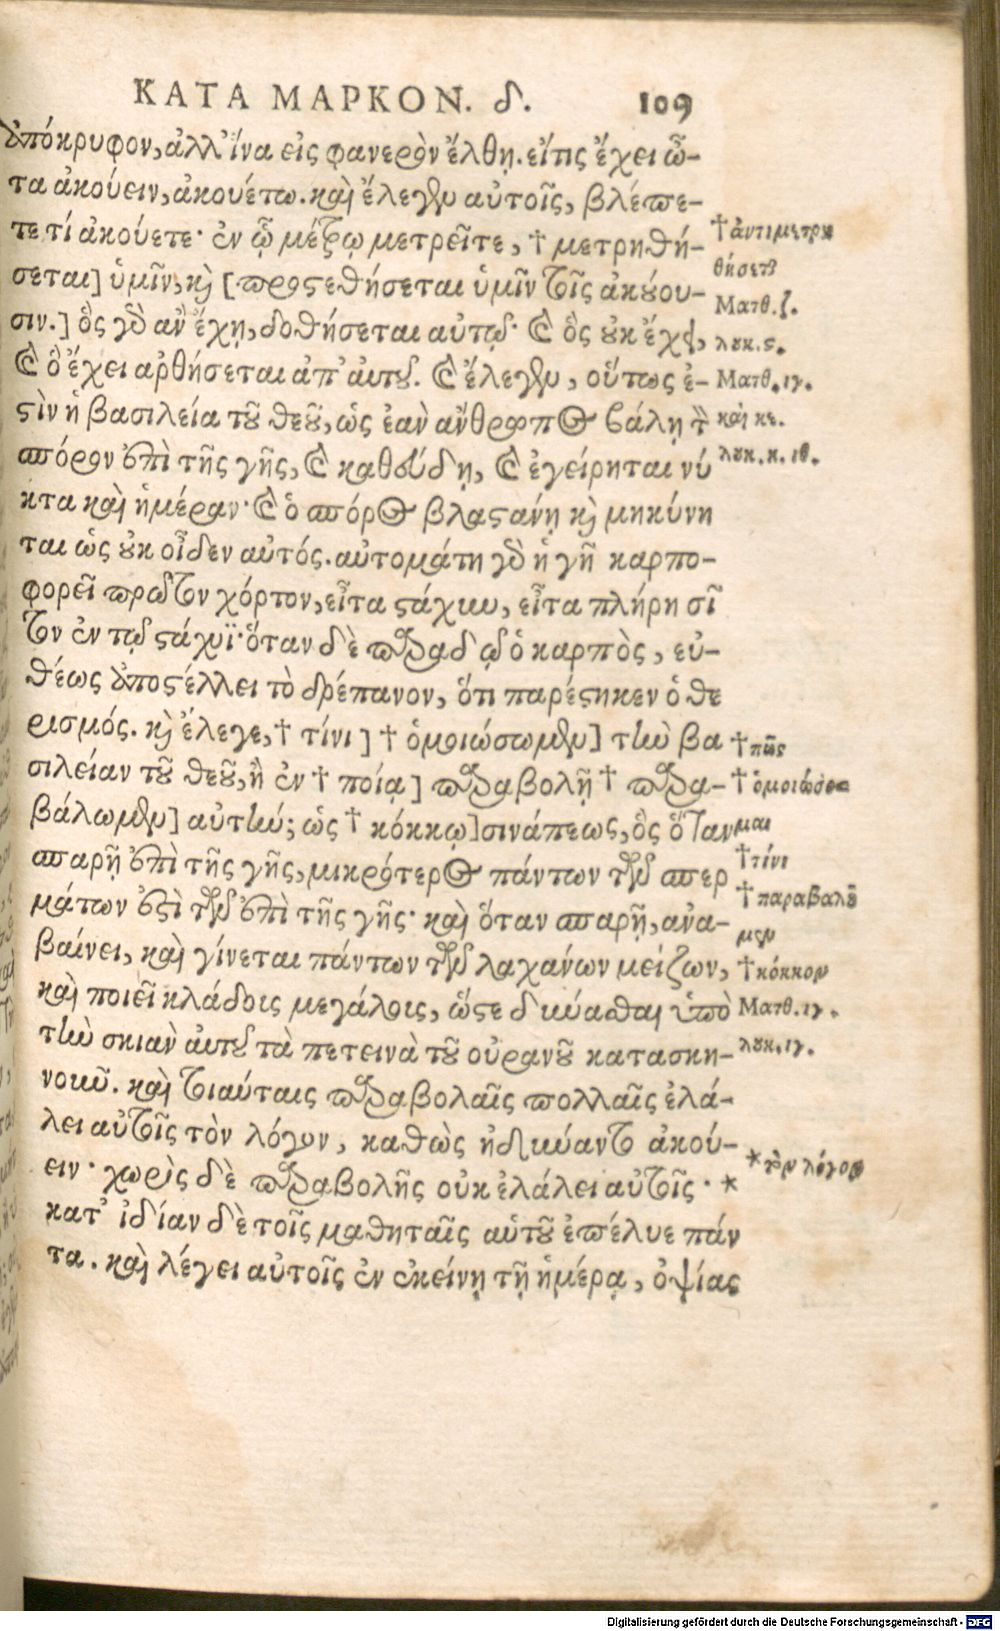 ΚΑΤΑ ΜΑΡΚΟΝ. δ. 109
ἀπόκρυφον, ἀλλ' ἵνα εἰς φανερὸν ἔλθῃ. εἴ τις ἔχει ὦ-
τα ἀκούειν, ἀκουέτω. καὶ ἔλεγεν αὐτοῖς, βλέπε-
τε τί ἀκούετε· ἐν ᾧ μέτρῳ μετρεῖτε, † μετρηθή-
σεται] ὑμῖν, καὶ [προστεθήσεται ὑμῖν τοῖς ἀκούου-
σιν.] ὃς γὰρ ἂν ἔχῃ, δοθήσεται αὐτῷ· καὶ ὃς οὐκ ἔχει,
καὶ ὃ ἔχει ἀρθήσεται ἀπ' αὐτοῦ. καὶ ἔλεγεν, οὕτως ἐ-
στὶν ἡ βασιλεία τοῦ θεοῦ, ὡς ἐὰν ἄνθρωπος βάλῃ τὸν
σπόρον ἐπὶ τῆς γῆς, καὶ καθεύδῃ, καὶ ἐγείρηται νύ
κτα καὶ ἡμέραν· καὶ ὁ σπόρος βλαστάνῃ καὶ μηκύνη
ται ὡς οὐκ οἶδεν αὐτός. αὐτομάτη γὰρ ἡ γῆ καρπο-
φορεῖ πρῶτον χόρτον, εἶτα στάχυν, εἶτα πλήρη σῖ
τον ἐν τῷ στάχυϊ· ὅταν δὲ παραδῷ ὁ καρπὸς, εὐ-
θέως ἀποστέλλει τὸ δρέπανον, ὅτι παρέστηκεν ὁ θε
ρισμός. καὶ ἔλεγε, † τίνι] † ὁμοιώσωμεν] τὴν βα
σιλείαν τοῦ θεοῦ, ἢ ἐν † ποίᾳ] παραβολῇ † παρα-
βάλωμεν] αὐτήν; ὡς † κόκκῳ] σινάπεως, ὃς ὅταν
σπαρῇ ἐπὶ τῆς γῆς, μικρότερος πάντων τῶν σπερ
μάτων ἐστὶ τῶν ἐπὶ τῆς γῆς· καὶ ὅταν σπαρῇ, ἀνα-
βαίνει, καὶ γίνεται πάντων τῶν λαχάνων μείζων,
καὶ ποιεῖ κλάδοις μεγάλοις, ὥστε δύνασθαι ὑπὸ
τὴν σκιὰν αὐτοῦ τὰ πετεινὰ τοῦ οὐρανοῦ κατασκη-
νοῦν. καὶ τοιαύταις παραβολαῖς πολλαῖς ἐλά-
λει αὐτοῖς τὸν λόγον, καθὼς ἠδύναντο ἀκού-
ειν· χωρὶς δὲ παραβολῆς οὐκ ἐλάλει αὐτοῖς· *
κατ' ἰδίαν δὲ τοῖς μαθηταῖς αὑτοῦ ἐπέλυε πάν
τα. καὶ λέγει αὐτοῖς ἐν ἐκείνῃ τῇ ἡμέρᾳ, ὀψίας
† ἀντιμετρη
θήσεται
Ματθ. ζ.
λουκ. ς.
Ματθ. ιγ.
καὶ κε.
λουκ. κ. ιθ.
† πῶς
† ὁμοιώσο-
μαι
† τίνι
† παραβαλοῦ
μεν
† κόκκον
Ματθ. ιγ.
λουκ. ιγ.
* τὸν λόγον
Digitalisierung gefördert durch die Deutsche Forschungsgemeinschaft - DFG